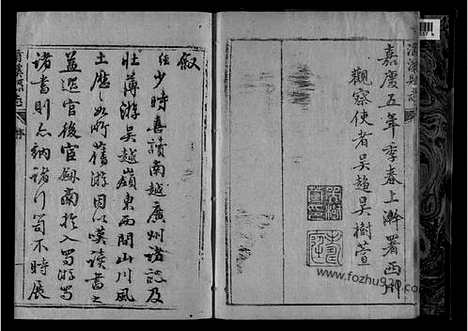 嘉慶五年季春上澣署西川
觀察使者吳趨吳樹萱
敘
余少時喜讀南越廣州諸說及
壯薄游吳越嶺東西間山川風
土歷之如昨舊游因以嘆讀書之
益迨官後官劍南於入蜀游蜀
諸書則亦納諸行笥不時展
www.fozhu920.com